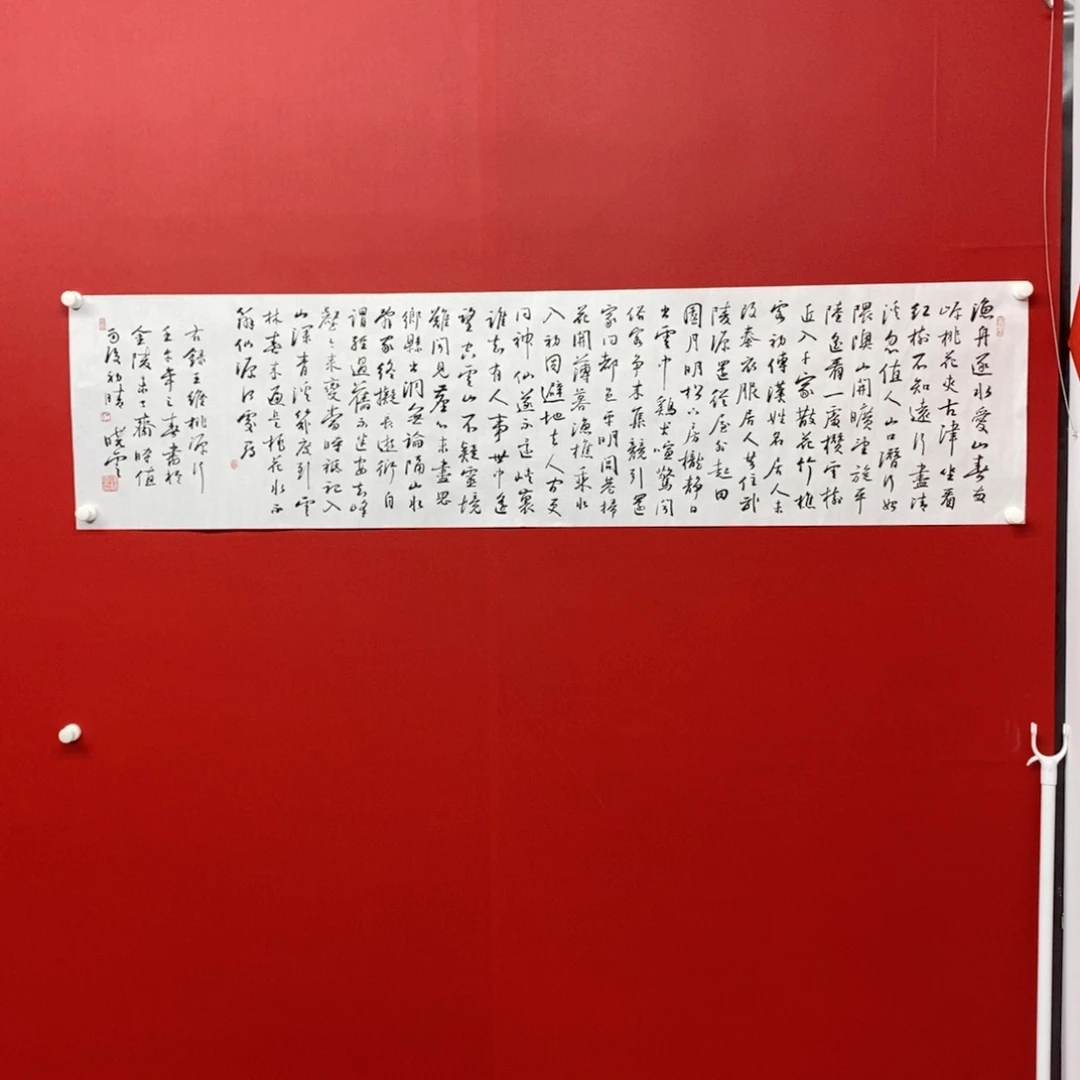 漁舟逐水愛山春兩
岸桃花夾古津坐看
紅樹不知遠行盡清
溪忽值人山口潛行始
隈隩山開曠望旋平
陸遙看一處攢雲樹
近入千家散花竹樵
客初傳漢姓名居人未
改秦衣服居人共住武
陵源還從物外起田
園月明松下房櫳靜日
出雲中鷄犬喧驚聞
俗客爭來集競引還
家問都邑平明閭巷掃
花開薄暮漁樵乘水
入初因避地去人間更
問神仙遂不還峽裏
誰知有人事世中遙
望空雲山不疑靈境
難聞見塵心未盡思
鄉縣出洞無論隔山水
辭家終擬長遊衍自
謂經過舊不迷安知峰
壑今來變當時祇記入
山深青溪幾度到雲
林春來遍是桃花水不
辨仙源何處尋
右錄王維桃源行
壬午年之春書於
金陵齋時值
雨後初晴 曉雲